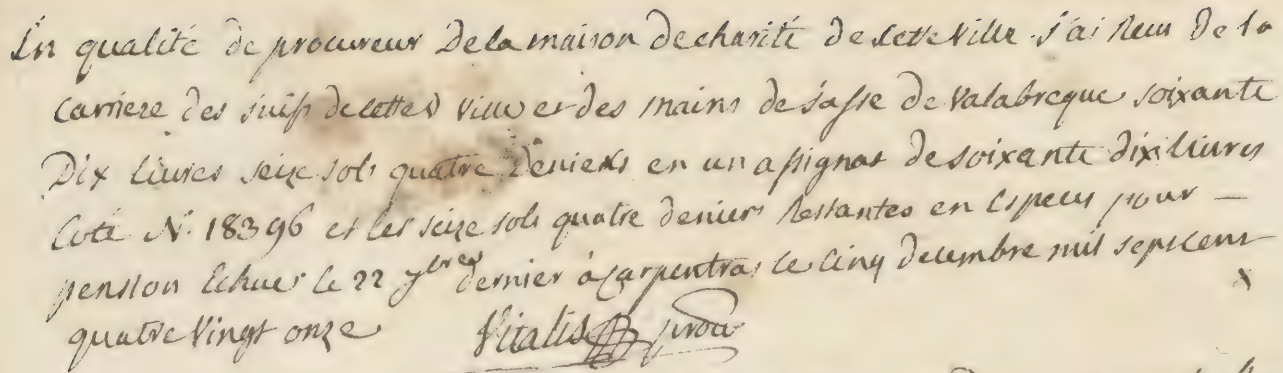 En qualité de procureur de la maison de charité de cette ville j'ai reçu de la
carriere des juifs de cette ville et des mains de Jasse de Valabreque soixante
Dix livres seize sols quatre deniers en un assignat de soixante dix livres
Coté N. 18396 et les seize sols quatre deniers restantes en especes pour
pension Echue le 22 7bre dernier à Carpentras le cinq decembre mil sept cent
quatre vingt onze Vitalis